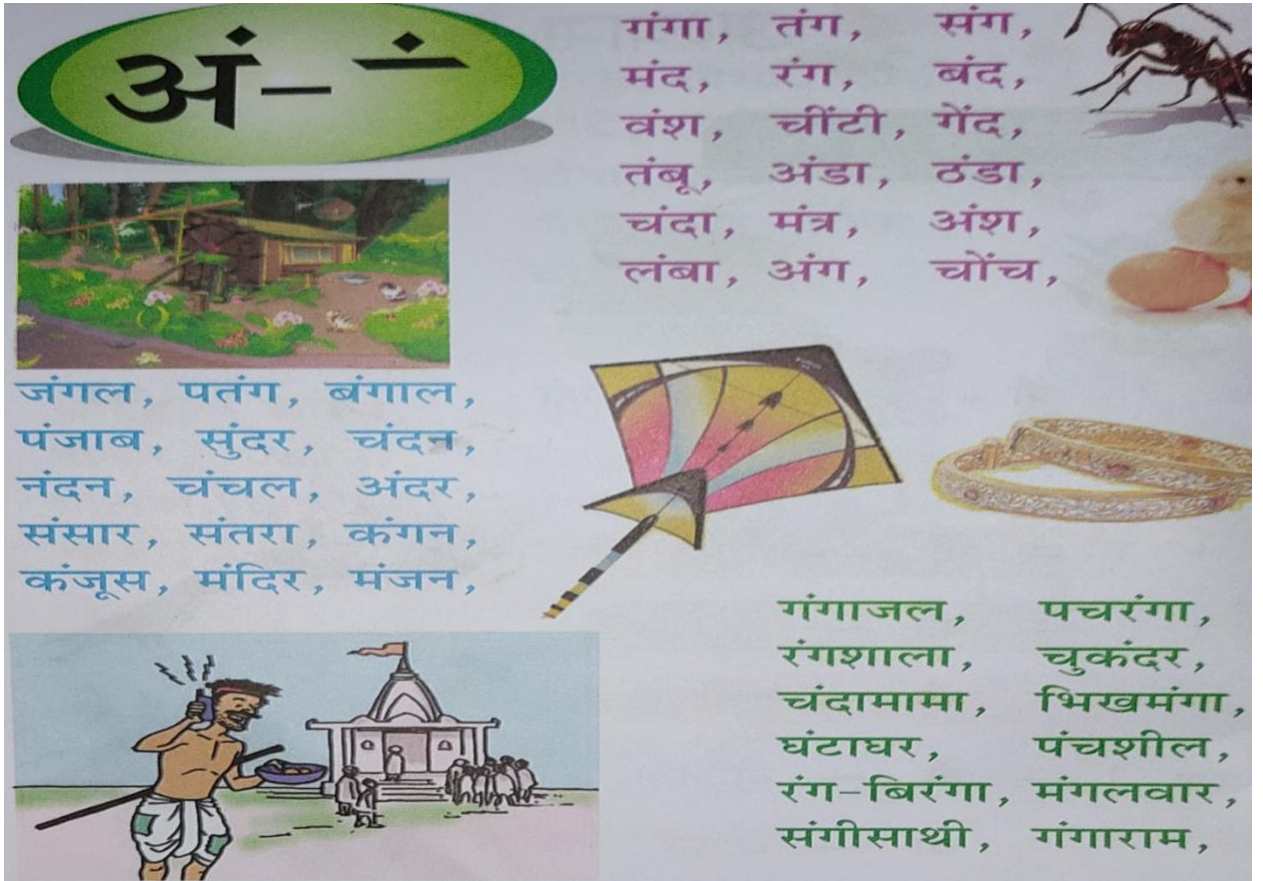 अं – ं
गंगा, तंग, संग,
मंद, रंग, बंद,
वंश, चींटी, गेंद,
तंबू, अंडा, ठंडा,
चंदा, मंत्र, अंश,
लंबा, अंग, चोंच,
जंगल, पतंग, बंगाल,
पंजाब, सुंदर, चंदन,
नंदन, चंचल, अंदर,
संसार, संतरा, कंगन,
कंजूस, मंदिर, मंजन,
गंगाजल, पचरंगा,
रंगशाला, चुकंदर,
चंदामामा, भिखमंगा,
घंटाघर, पंचशील,
रंग-बिरंगा, मंगलवार,
संगीसाथी, गंगाराम,